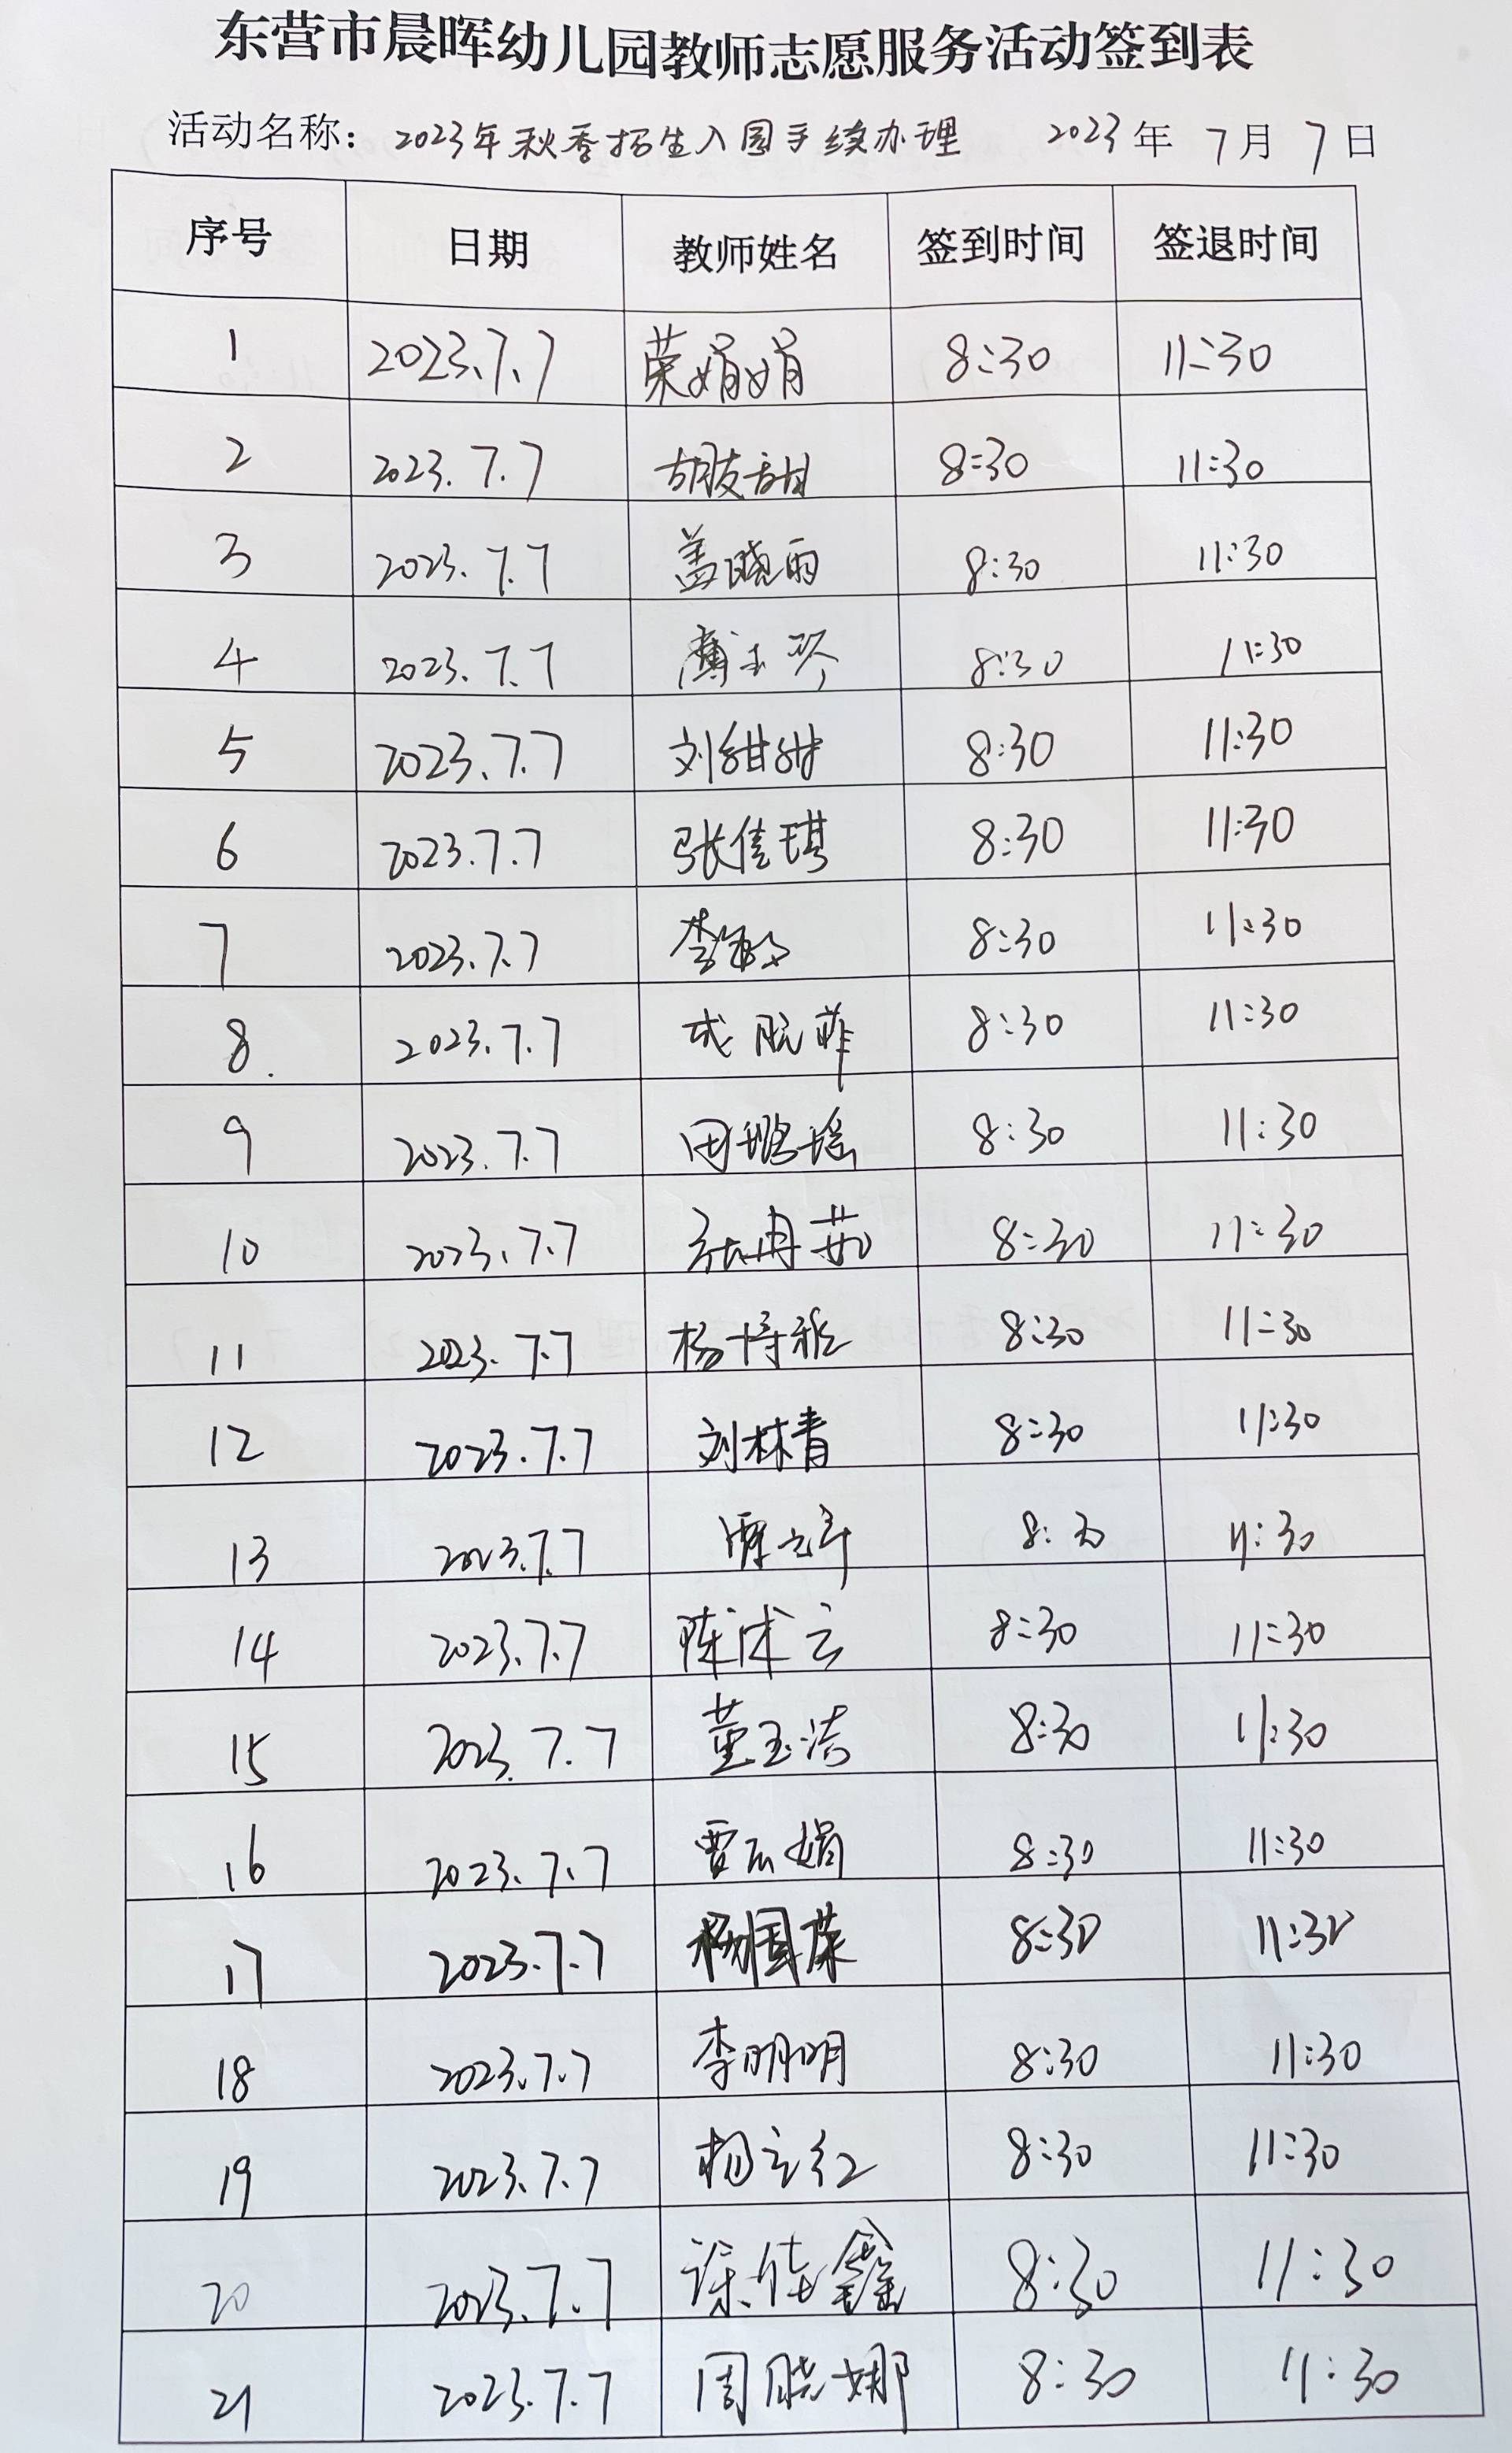 东营市晨晖幼儿园教师志愿服务活动签到表
活动名称：2023年秋季招生入园手续办理 2023年7月7日
序号 日期 教师姓名 签到时间 签退时间
1 2023.7.7 荣娟娟 8:30 11:30
2 2023.7.7 胡甜 8:30 11:30
3 2023.7.7 盖晓雨 8:30 11:30
4 2023.7.7 薄玉琴 8:30 11:30
5 2023.7.7 刘甜甜 8:30 11:30
6 2023.7.7 张佳琪 8:30 11:30
7 2023.7.7 李敏 8:30 11:30
8 2023.7.7 成阮菲 8:30 11:30
9 2023.7.7 田璐瑶 8:30 11:30
10 2023.7.7 张冉茹 8:30 11:30
11 2023.7.7 杨博雅 8:30 11:30
12 2023.7.7 刘林青 8:30 11:30
13 2023.7.7 8:30 11:30
14 2023.7.7 陈术云 8:30 11:30
15 2023.7.7 董玉洁 8:30 11:30
16 2023.7.7 贾云娟 8:30 11:30
17 2023.7.7 杨国荣 8:30 11:30
18 2023.7.7 李明明 8:30 11:30
19 2023.7.7 杨立红 8:30 11:30
20 2023.7.7 佳鑫 8:30 11:30
21 2023.7.7 周晓娜 8:30 11:30